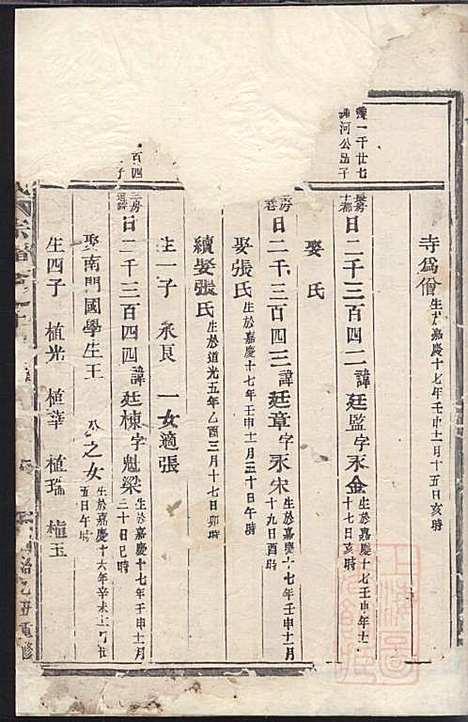 寺爲僧生於嘉慶十七年壬申十二月十五日亥時
一千廿七
河公品子
日二千三百四二諱廷監字永金生於嘉慶十七年壬申年十二
十七日亥時
娶 氏
日二千三百四三諱廷章字永宋生於嘉慶十七年壬申十一月
十九日酉時
娶張氏生於嘉慶十七年壬申十一月三十日午時
續娶張氏生於道光五年乙酉三月十七日卯時
生一子 永良 一女適張
百四
子
日二千三百四四諱廷棟字魁梁生於嘉慶十七年壬申十一月
二十日巳時
娶南門國學生王 公之女生於嘉慶十六年辛未十一月廿
五日午時
生四子 植光 植華 植瑞 植玉
宗譜卷之十